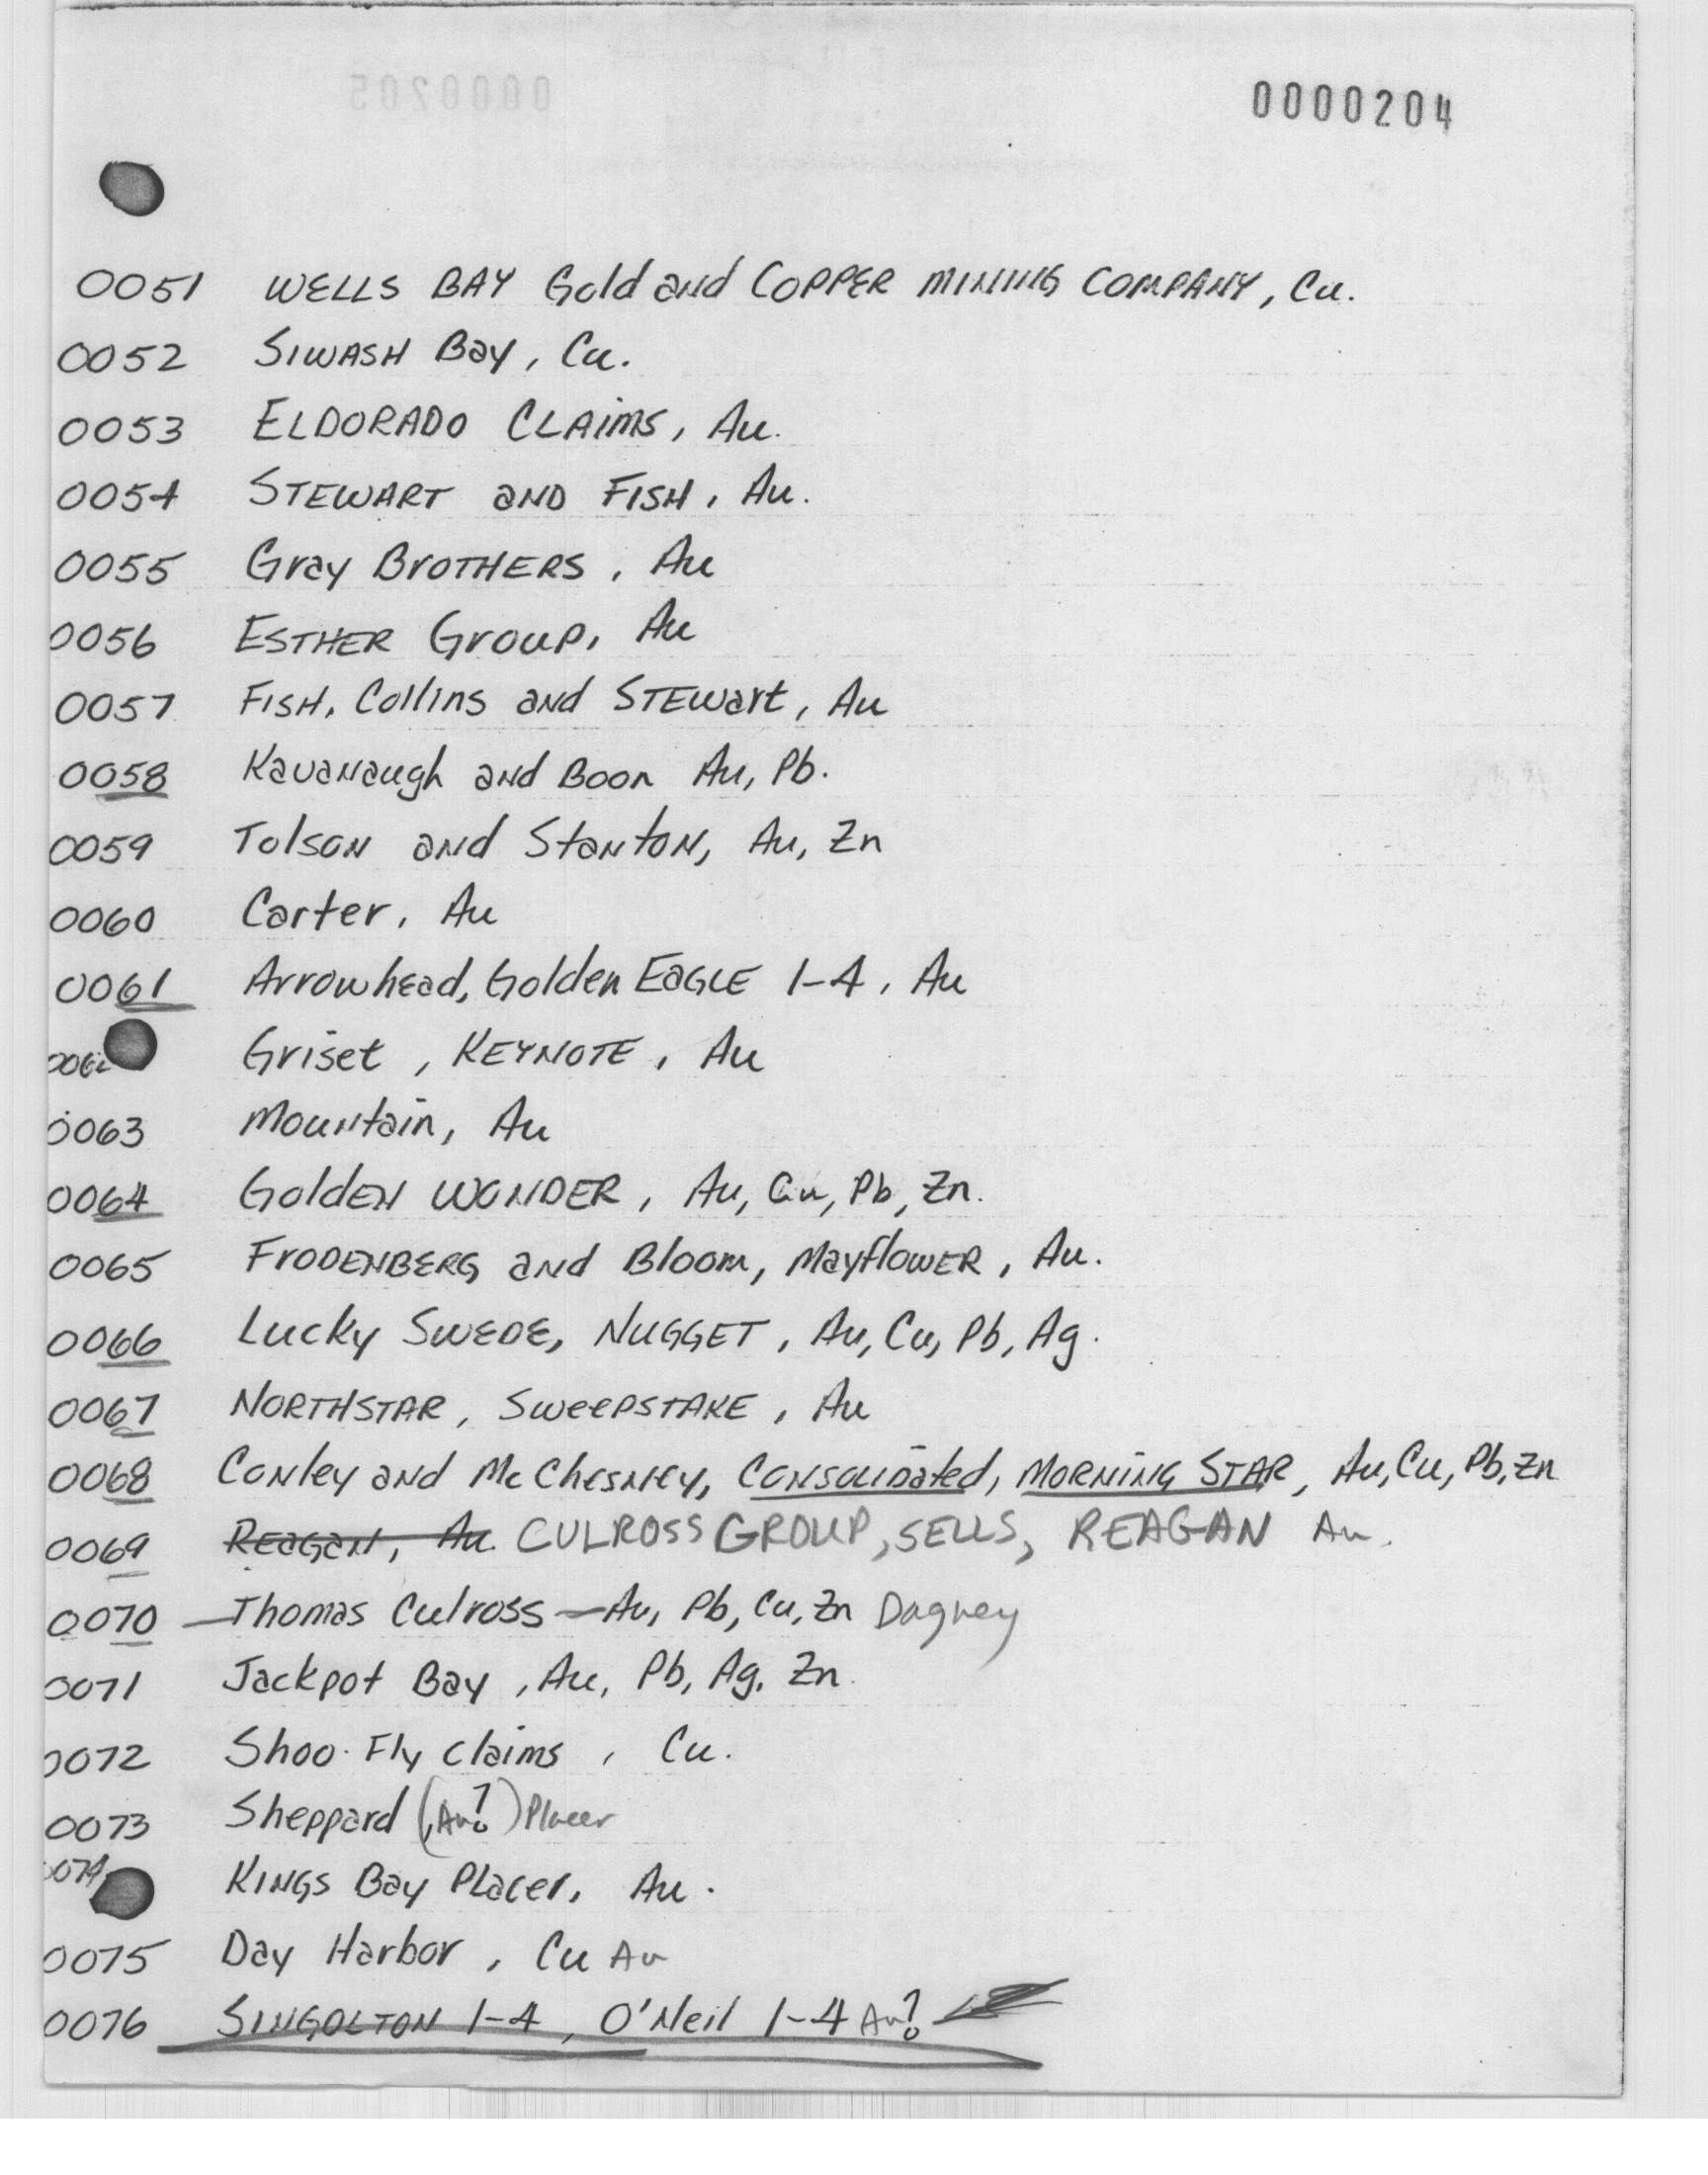 0000204
0051 WELLS BAY Gold and COPPER MINING COMPANY, Cu.
0052 SIWASH Bay, Cu.
0053 ELDORADO CLAIMS, Au.
0054 STEWART AND FISH, Au.
0055 Gray BROTHERS, Au
0056 ESTHER Group, Au
0057 FISH, Collins and STEWart, Au
0058 Kavanaugh and Boon Au, Pb.
0059 Tolson and Stanton, Au, Zn
0060 Carter, Au
0061 Arrowhead, Golden EAGLE 1-4, Au
Griset, KEYNOTE, Au
0063 Mountain, Au
0064 Golden WONDER, Au, Cu, Pb, Zn.
0065 FRODENBERG and Bloom, MayflowER, Au.
0066 Lucky SWEDE, NUGGET, Au, Cu, Pb, Ag.
0067 NORTHSTAR, SWEEPSTAKE, Au
0068 Conley and McChesney, CONSOLIDated, MORNING STAR, Au, Cu, Pb, Zn
0069 REAGAN, Au. CULROSS GROUP, SELLS, REAGAN Au.
0070 Thomas Culross - Au, Pb, Cu, Zn Dagney
0071 Jackpot Bay, Au, Pb, Ag, Zn.
0072 Shoo-Fly Claims, Cu.
0073 Sheppard (, Au?) Placer
0074 KINGS Bay Placer, Au.
0075 Day Harbor, Cu Au
0076 SINGOLTON 1-4, O'Neil 1-4 Au?